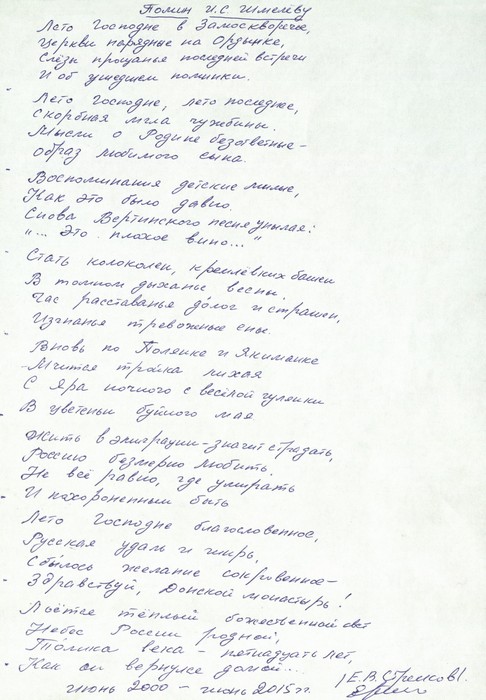 Помин И.С. Шмелёву
Лето Господне в Замоскворечье,
Церкви парадные на Ордынке,
Слёзы прощанья последней встречи
И об ушедшем поминки.
Лето Господне, лето последнее,
Скорбная мгла чужбины.
Мысли о Родине безответные -
образ любимого сына.
Воспоминания детские милые,
Как это было давно.
Снова Вертинского песня унылая:
"... Это плохое вино..."
Стать колоколен, кремлёвских башен
В томном дыханье весны.
Час расставанья долог и страшен,
Изгнанья тревожные сны.
Вновь по Полянке и Якиманке
Мчится тройка лихая
С Яра ночного с весёлой гулянки
В цветеньи буйного мая
Жить в эмиграции - значит страдать,
Россию безмерно любить.
Не всё равно, где умирать
И похороненным быть
Лето Господне благословенное,
Русская удаль и ширь,
Сбылось желание сокровенное -
Здравствуй, Донской монастырь!
Льётся тёплый божественный свет
Небес России родной,
Толика века - пятнадцать лет,
Как он вернулся домой...
/Е.В. Стрелков/.
июнь 2000 - июнь 2015 гг.